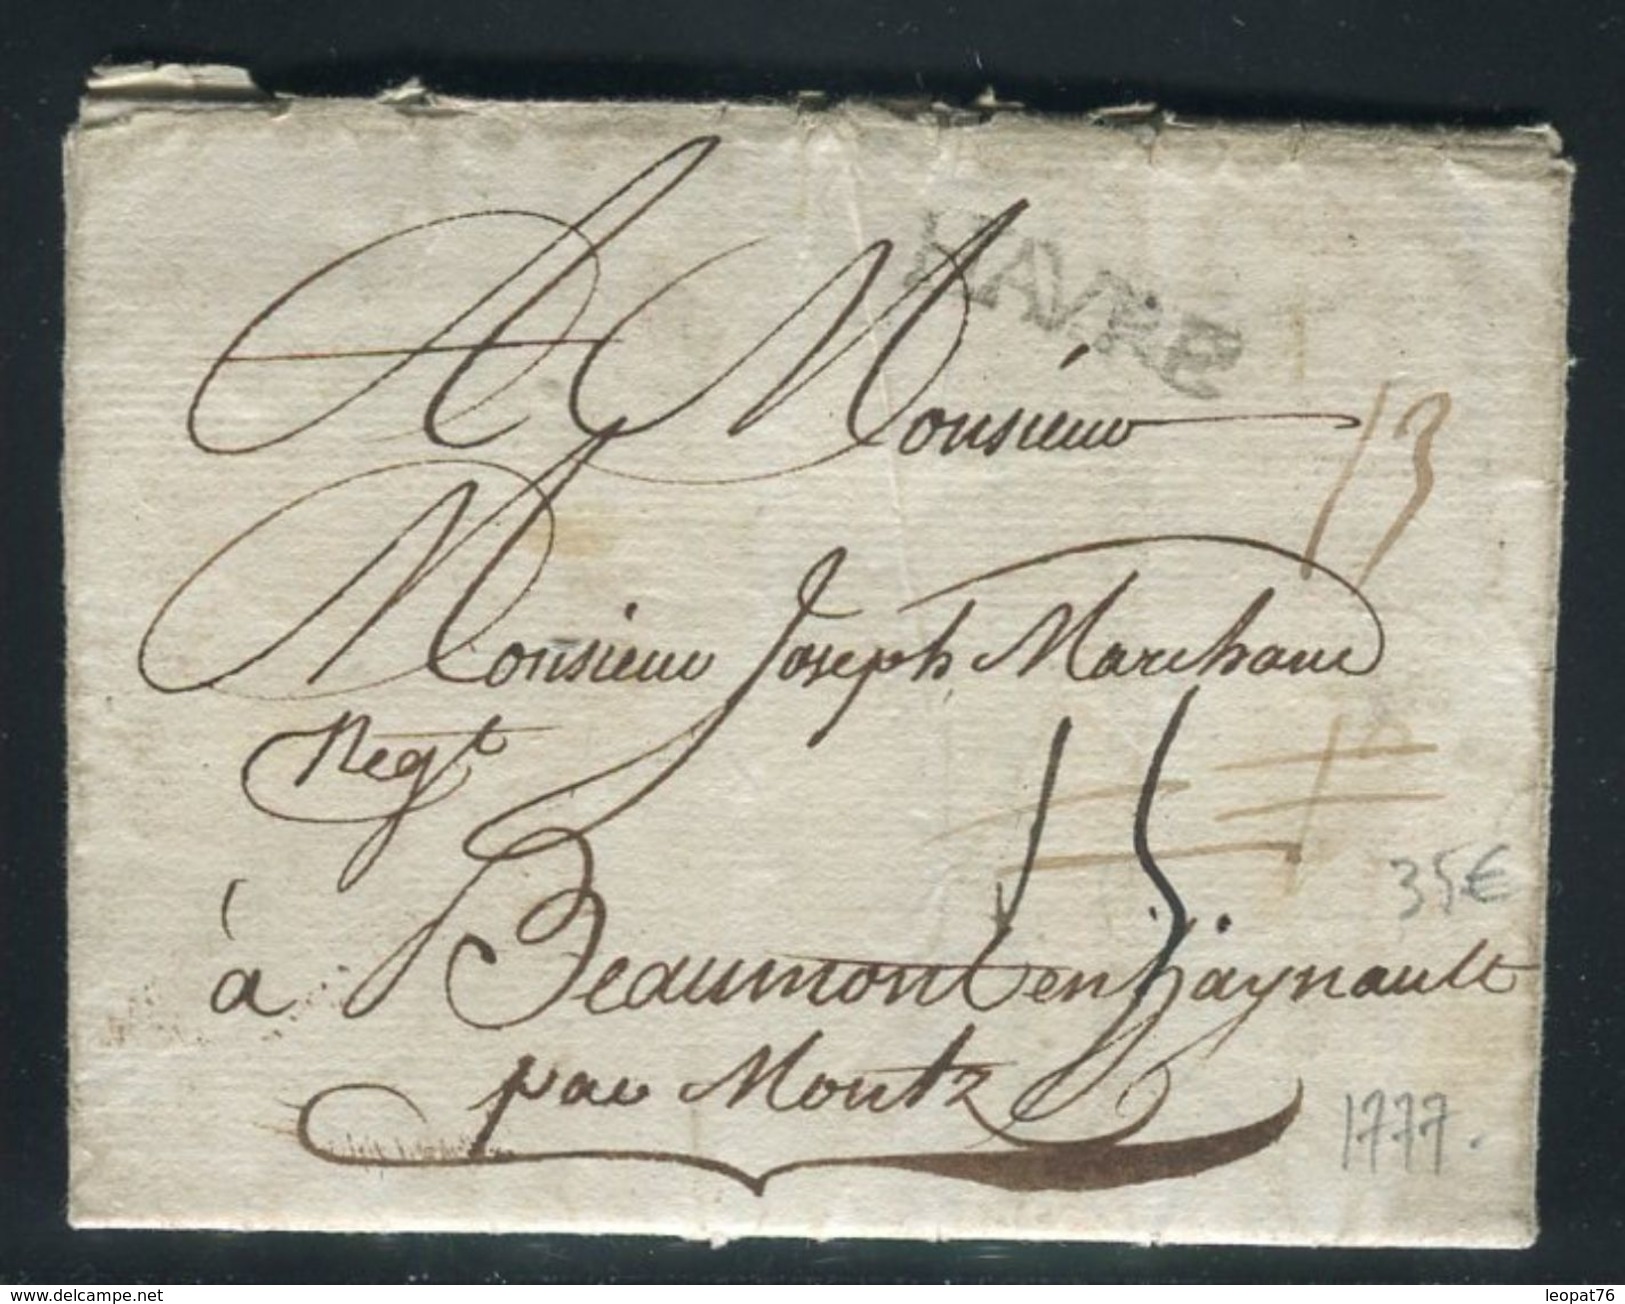 HAVRE
A Monsieur
13
Monsieur Joseph Marchant
Negt
15
35€
à Beaumont en haynault
par Montz
1777.
www.delcampe.net
leopat76